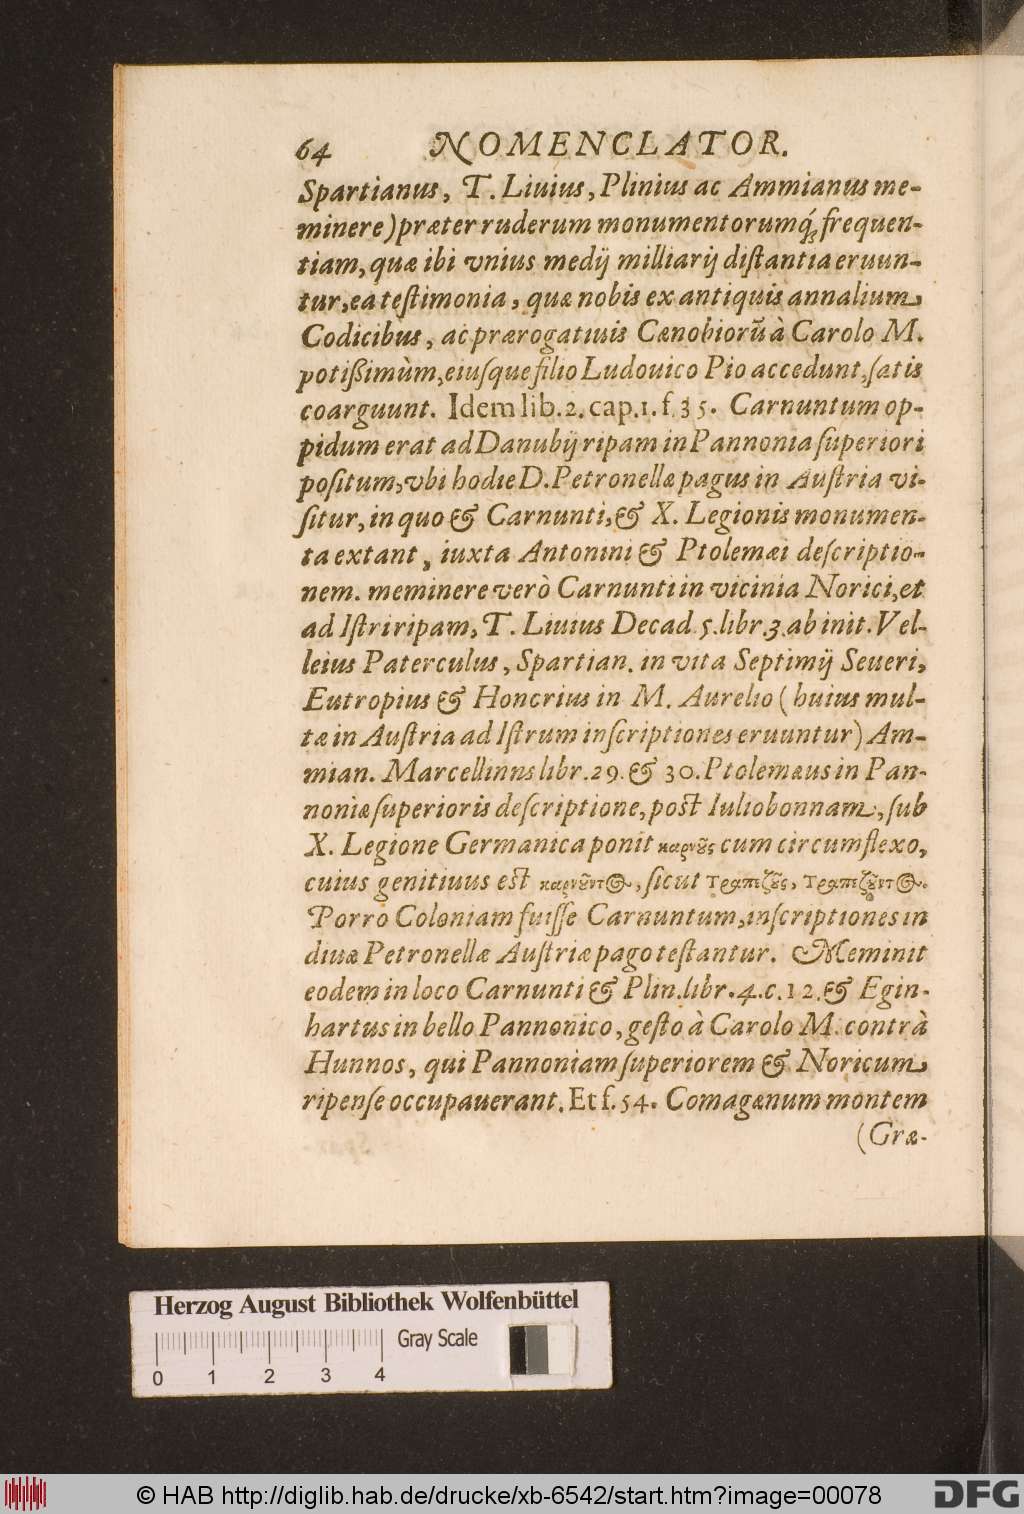 64 NOMENCLATOR.
Spartianus, T. Liuius, Plinius ac Ammianus me-
minere) præter ruderum monumentorumq́ꝫ frequen-
tiam, quæ ibi vnius medij milliarij diſtantia eruun-
tur, ea teſtimonia, quæ nobis ex antiquis annalium
Codicibus, ac prærogatiuis Cænobiorũ à Carolo M.
potißimùm, eiuſque filio Ludouico Pio accedunt, ſatis
coarguunt. Idem lib. 2. cap. 1. f. 35. Carnuntum op-
pidum erat ad Danubij ripam in Pannonia ſuperiori
poſitum, vbi hodie D. Petronellæ pagus in Auſtria vi-
ſitur, in quo & Carnunti, & X. Legionis monumen-
ta extant, iuxta Antonini & Ptolemæi deſcriptio-
nem. meminere verò Carnunti in vicinia Norici, et
ad Iſtri ripam, T. Liuius Decad. 5. libr. 3. ab init. Vel-
leius Paterculus, Spartian. in vita Septimij Seueri,
Eutropius & Honorius in M. Aurelio (huius mul-
tæ in Auſtria ad Iſtrum inſcriptiones eruuntur) Am-
mian. Marcellinus libr. 29. & 30. Ptolemæus in Pan-
noniæ ſuperioris deſcriptione, poſt Iuliobonnam, ſub
X. Legione Germanica ponit καρνοῦς cum circumflexo,
cuius genitiuus eſt καρνοῦντος, ſicut Τραπεζοῦς, Τραπεζοῦντος.
Porrò Coloniam fuiſſe Carnuntum, inſcriptiones in
diuæ Petronellæ Auſtriæ pago teſtantur. Meminit
eodem in loco Carnunti & Plin. libr. 4. c. 12. & Egin-
hartus in bello Pannonico, geſto à Carolo M. contrà
Hunnos, qui Pannoniam ſuperiorem & Noricum
ripenſe occupauerant. Et f. 54. Comagænum montem
(Græ-
Herzog August Bibliothek Wolfenbüttel
Gray Scale
0 1 2 3 4
© HAB http://diglib.hab.de/drucke/xb-6542/start.htm?image=00078
DFG